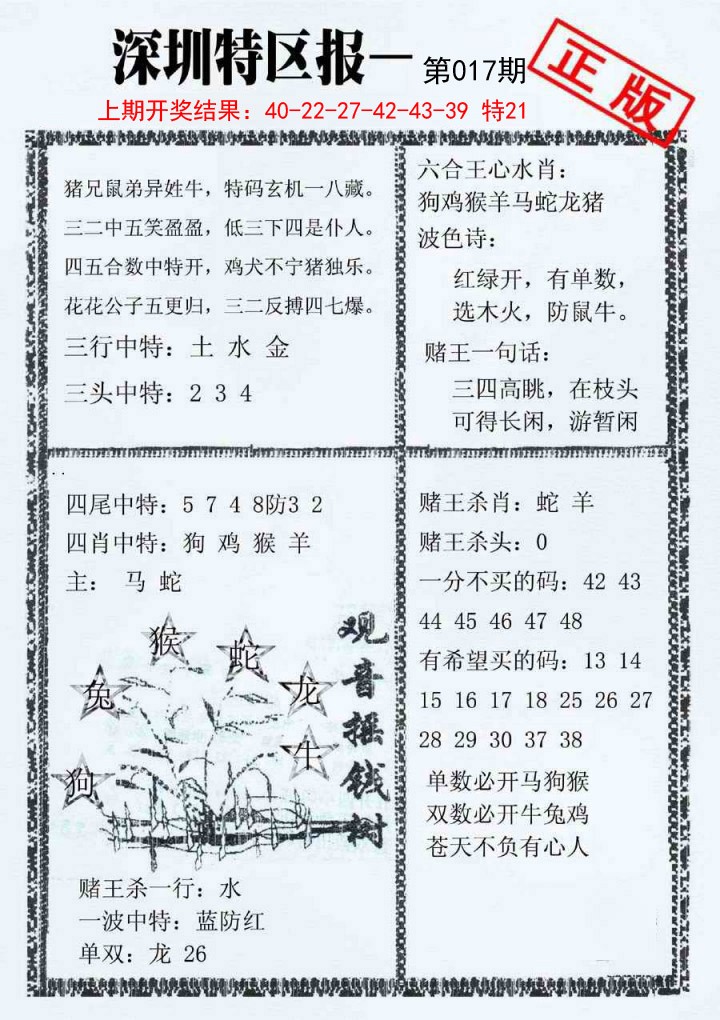 深圳特区报一 第017期
正版
上期开奖结果：40-22-27-42-43-39 特21
猪兄鼠弟异姓牛，特码玄机一八藏。
三二中五笑盈盈，低三下四是仆人。
四五合数中特开，鸡犬不宁猪独乐。
花花公子五更归，三二反搏四七爆。
三行中特：土 水 金
三头中特：2 3 4
六合王心水肖：
狗鸡猴羊马蛇龙猪
波色诗：
红绿开，有单数，
选木火，防鼠牛。
赌王一句话：
三四高眺，在枝头
可得长闲，游暂闲
四尾中特：5 7 4 8防3 2
四肖中特：狗 鸡 猴 羊
主： 马 蛇
猴
蛇
兔
龙
牛
狗
观音摇钱树
赌王杀一行：水
一波中特：蓝防红
单双：龙 26
赌王杀肖：蛇 羊
赌王杀头：0
一分不买的码：42 43
44 45 46 47 48
有希望买的码：13 14
15 16 17 18 25 26 27
28 29 30 37 38
单数必开马狗猴
双数必开牛兔鸡
苍天不负有心人